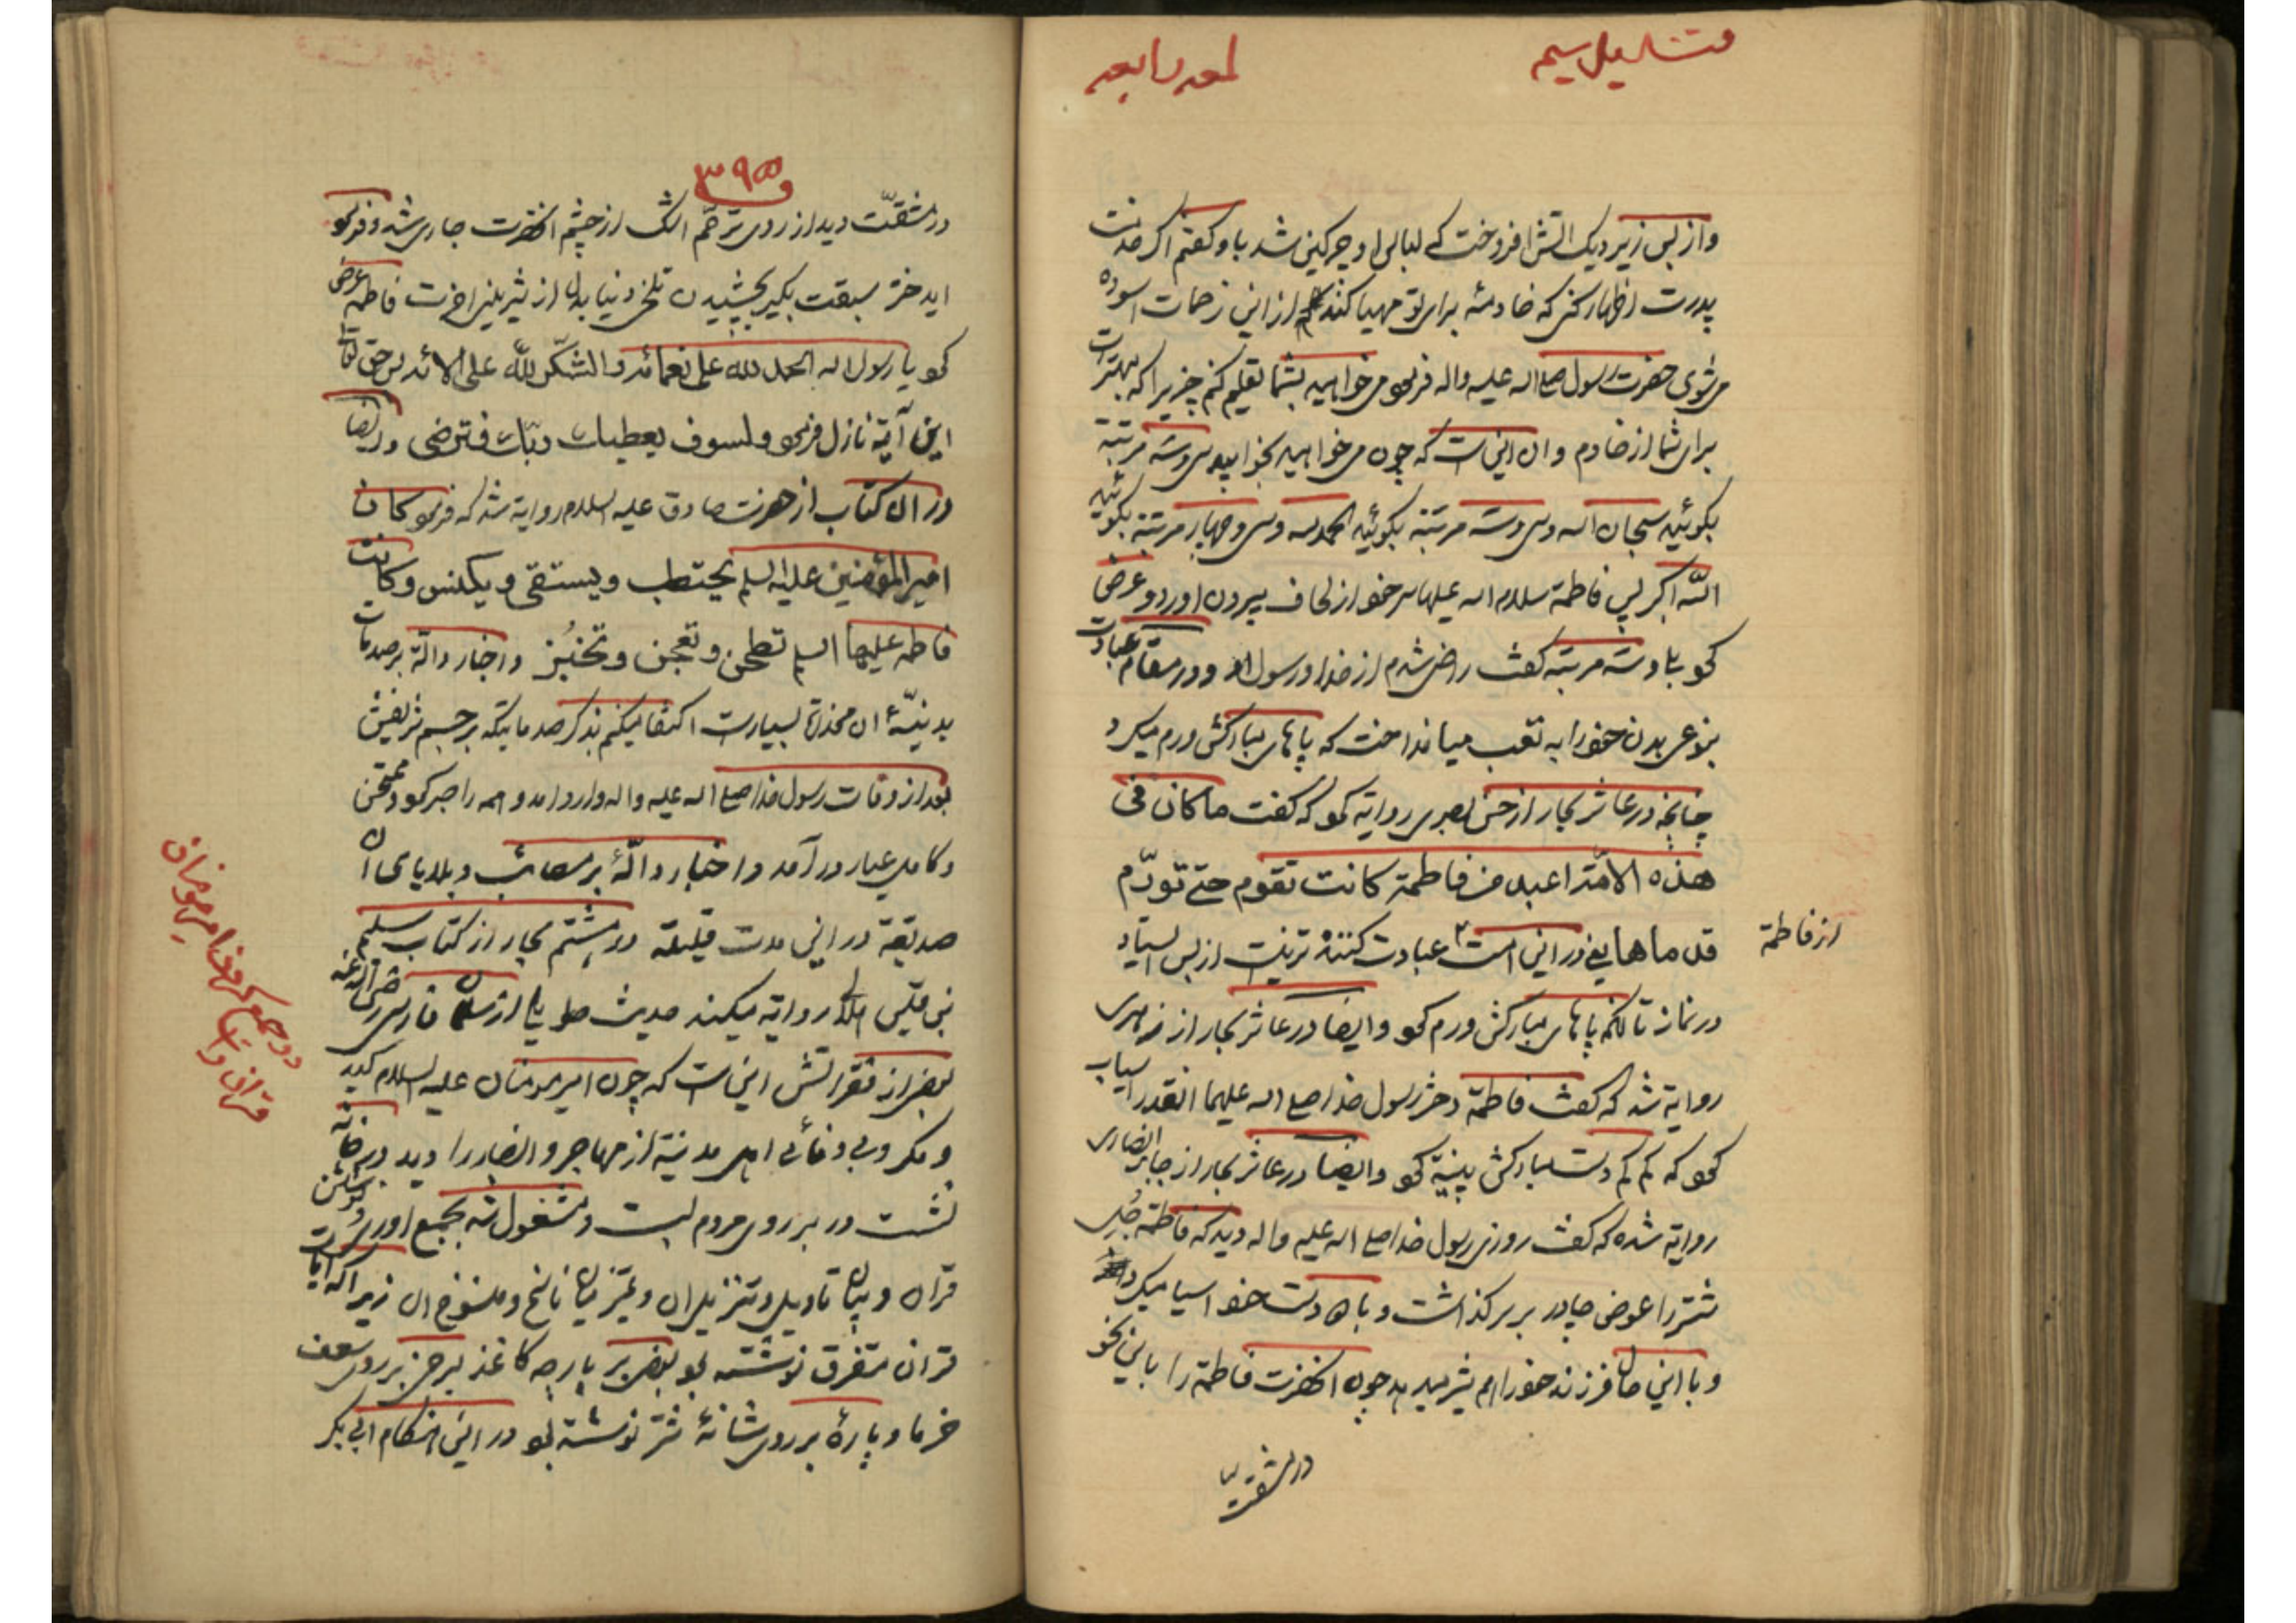 لمعه رابعه
و از بس زیر دیک اتش افروخت که لباس او چرکین شد باو کفتم اکر خدمت
پدرت اظهار کنی که خادمهٔ برای تو مهیا کند از این زحمات اسوده
می شوی حضرت رسول صلی اله علیه و اله فرمود می خواهید بشما تعلیم کنم چیزیرا که بهتر است
برای شما از خادم و ان این است که چون می خواهید بخوابید سی و سه مرتبة
بکوئید سبحان اله و سی و سه مرتبة بکوئید الحمد لله و سی و چهار مرتبة بکوئید
اللّه اکبر پس فاطمة سلام اله علیها سر خود از لحاف بیرون اورد و عرض
کرد بلی و سه مرتبة کفت راضی شدم از خدا و رسول او و در مقام عبادت
بنوعی بدن خود را به تعب میانداخت که پاهای مبارکش ورم میکرد
چنانچه در عاشر بحار از حسن بصری روایة کرد که کفت ما کان فی
هذه الامّة اعبد من فاطمة کانت تقوم حتی تورّم
قدماها یعنی در این امت عبادت کننده تر نیست از بس ایستاد
از فاطمة
در نماز تا انکه پاهای مبارکش ورم کرد و ایضا در عاشر بحار از زهری
روایة شد که کفت فاطمة دختر رسول خدا صلی اله علیهما انقدر اسیاب
کرد که کم کم دست مبارکش پینة کرد و ایضا در عاشر بحار از جابر انصاری
روایة شده که کفت روزی رسول خدا صلی اله علیه و اله دید که فاطمة جُل
شتر را عوض چادر بر سر کذاشت و با دست خود اسیا میکرد
و با این حال فرزند خود را هم شیر میدهد چون انحضرت فاطمة را باین نحو
در مشقّت
۳۹۵
در مشقّت دید از روی ترحّم اشک از چشم انحضرت جاری شد و فرمود
ایدختر سبقت بکیر بچشیدن تلخی دنیا بدل از شیرینی اخرت فاطمه عرض
کرد یا رسول اله الحمد للّه علی نعمائه و الشکر للّه علی الائه پس حق تعالی
این آیة نازل فرمود و لسوف یعطیک ربّک فترضی و ایضا
در ان کتاب از حضرت صادق علیه السلام روایة شد که فرمود کان
امیر المؤمنین علیه السلم یحتطب و یستقی و یکنس و کانت
فاطمه علیها السلم تطحن و تعجن و تخبُز و اخبار دالّة بر صدمات
بدنیّهٔ ان مخدرة بسیار است اکتفا میکنم بذکر صدماتیکه بر جسم شریفش
بعد از وفات رسول خدا صلی اله علیه و اله وارد امد و همه را صبر کرد و ممتحن
و کامل عیار در آمد و اخبار دالّهٔ بر مصائب و بلایای ان
صدیقة در این مدت قلیلة در هشتم بحار از کتاب سلیم
بن قیس هلالی روایة میکند حدیث طویلی از سلمان فارسی رضی اله عنه
بعض از فقراتش این است که چون امیر مومنان علیه السلام کید
و مکر و بی وفائی اهل مدینة از مهاجر و انصار را دید در خانه
نشست در بر روی مردم بست و مشغول شد بجمع اوری و نوشتن
قران و بیان تاویل و تنزیل ان و تمیز میان ناسخ و منسوخ ان زیرا که ایات
قران متفرق نوشته بود بعض بر پارچه کاغذ برخی بر روی سعف
خرما و پارهٔ بر روی شانهٔ شتر نوشته بود در این هنکام ابی بکر